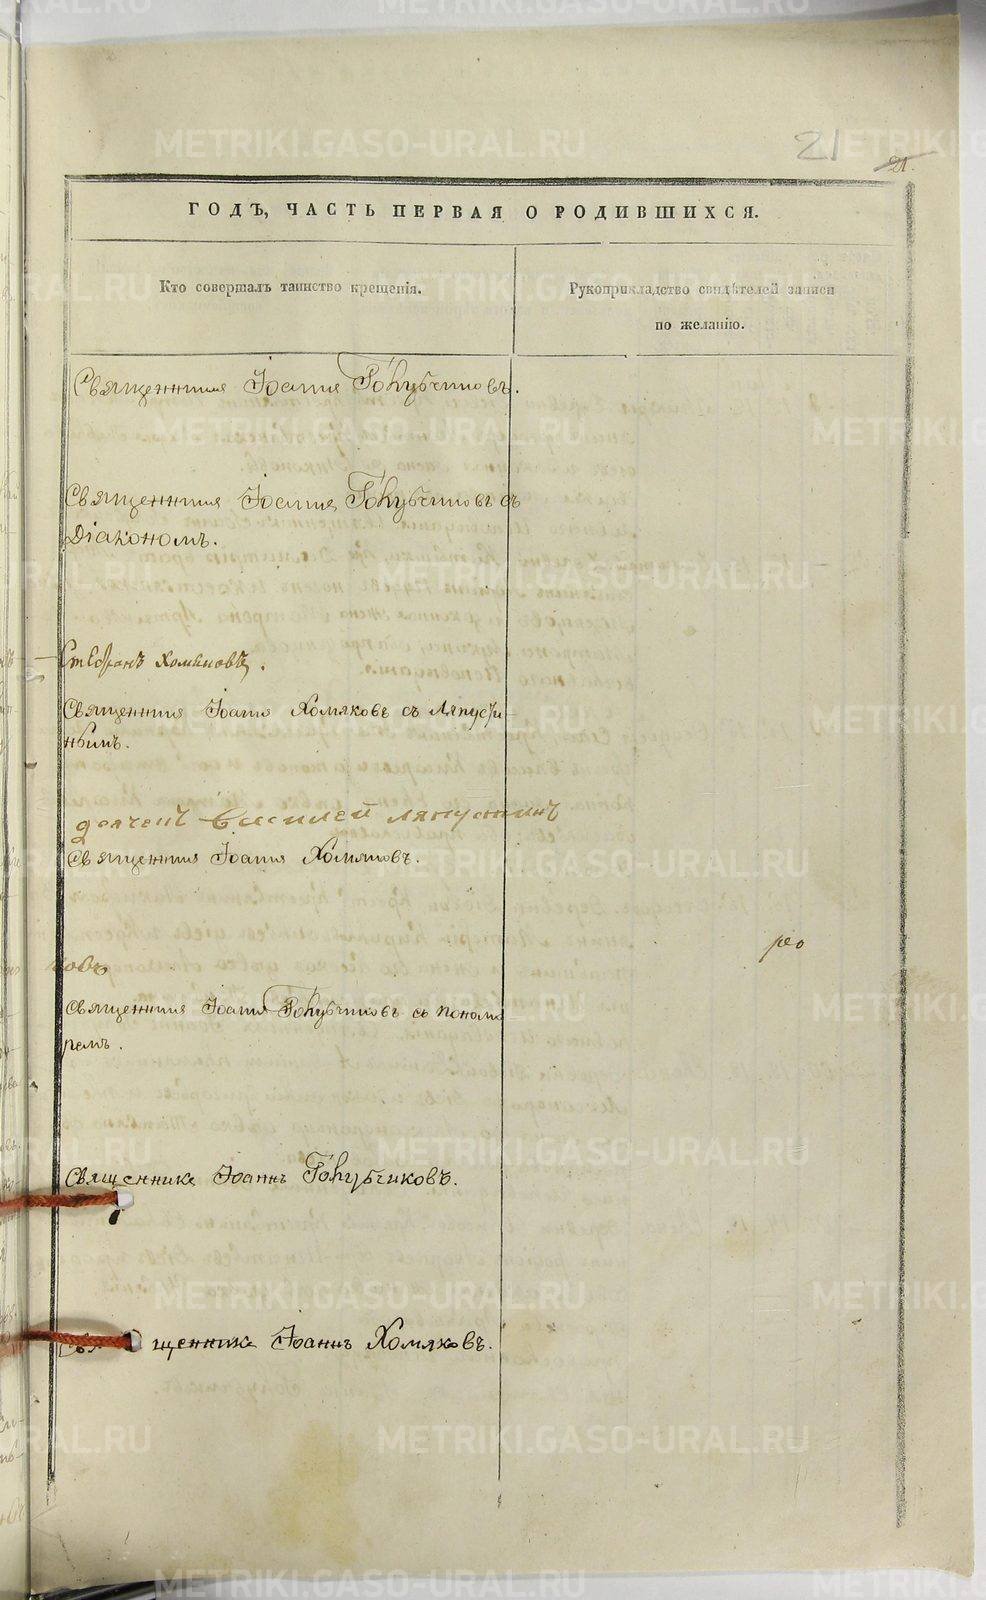 21
21.
ГОДЪ, ЧАСТЬ ПЕРВАЯ О РОДИВШИХСЯ.
Кто совершалъ таинство крещенія.
Рукоприкладство свидѣтелей записи
по желанію.
Священникъ Іоаннъ Голубчиковъ.
Священникъ Іоаннъ Голубчиковъ съ
Діакономъ.
Стефанъ Хомяковъ.
Священникъ Іоаннъ Хомяковъ съ Ляпусти-
нымъ.
Василей Ляпустинъ
Священникъ Іоаннъ Хомяковъ.
ковъ
Священникъ Іоаннъ Голубчиковъ съ понома
ремъ.
Священникъ Іоаннъ Голубчиковъ.
Священникъ Іоаннъ Хомяковъ.
METRIKI.GASO-URAL.RU